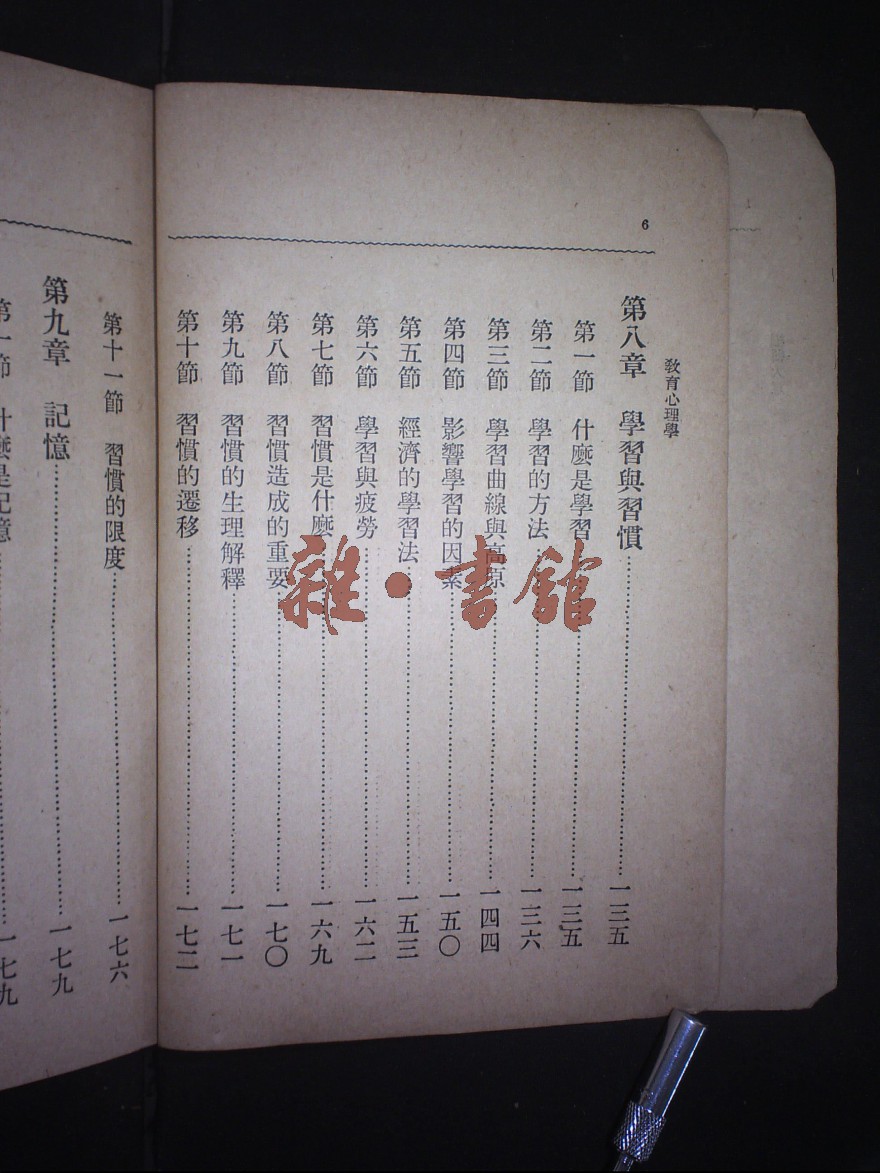 6
教育心理學
第八章 學習與習慣…………一三五
第一節 什麼是學習…………一三五
第二節 學習的方法…………一三六
第三節 學習曲線與高原…………一四四
第四節 影響學習的因素…………一五〇
第五節 經濟的學習法…………一五三
第六節 學習與疲勞…………一六二
第七節 習慣是什麼…………一六九
第八節 習慣造成的重要…………一七〇
第九節 習慣的生理解釋…………一七一
第十節 習慣的遷移…………一七二
第十一節 習慣的限度…………一七六
第九章 記憶…………一七九
第一節 什麼是記憶…………一七九
雜·書館